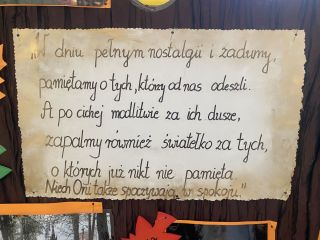 „W dniu pełnym nostalgii i zadumy,
pamiętamy o tych, którzy od nas odeszli.
A po cichej modlitwie za ich dusze,
zapalmy również światełko za tych,
o których już nikt nie pamięta.
Niech Oni także spoczywają w spokoju."